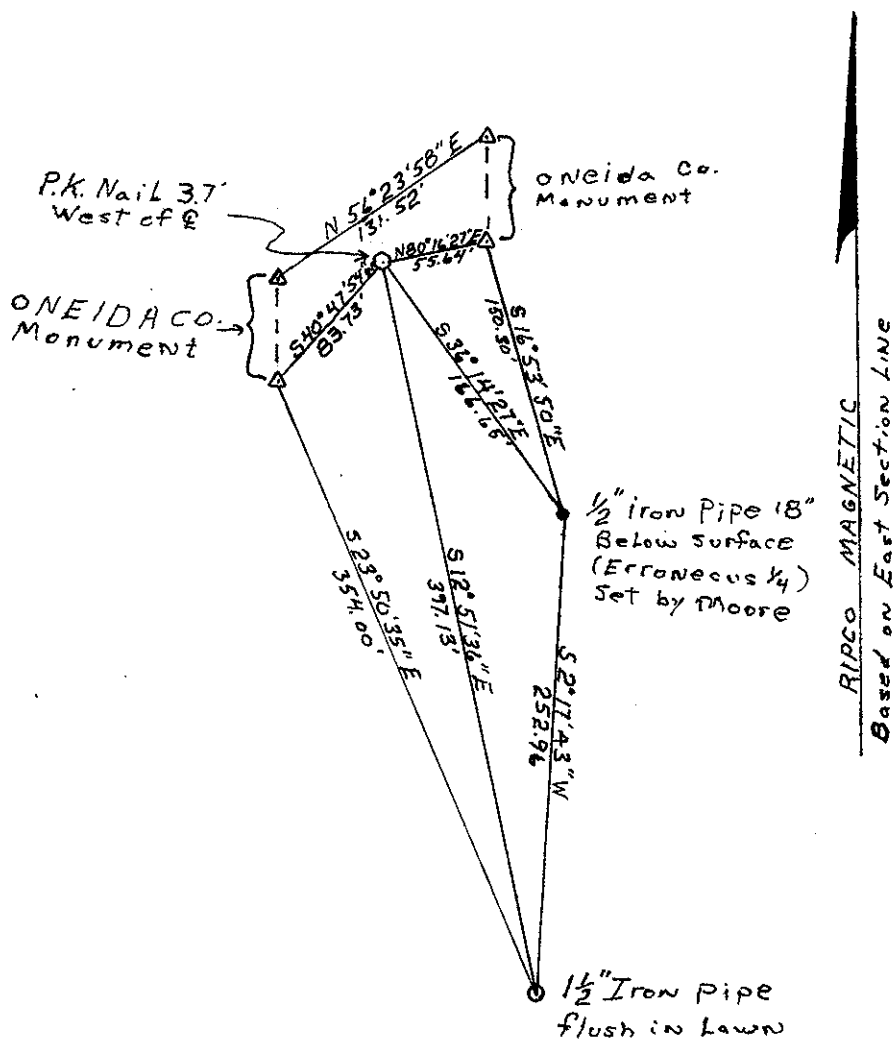 N 56°23'58" E
131.52'
P.K. Nail 3.7'
West of ℄
ONeida Co.
Monument
N80°16'27"E
55.64'
ONEIDA CO.
Monument
S40°47'54"
83.73'
S 16°53'50"E
150.80'
S 36°14'27"E
166.65'
1/2" iron Pipe 18"
Below surface
(Erroneous 1/4)
Set by Moore
S 23°50'35" E
354.00'
S 12°51'36" E
397.13'
S 2°17'43" W
252.96
1 1/2" Iron pipe
flush in Lawn
RIPCO MAGNETIC
Based on East Section Line